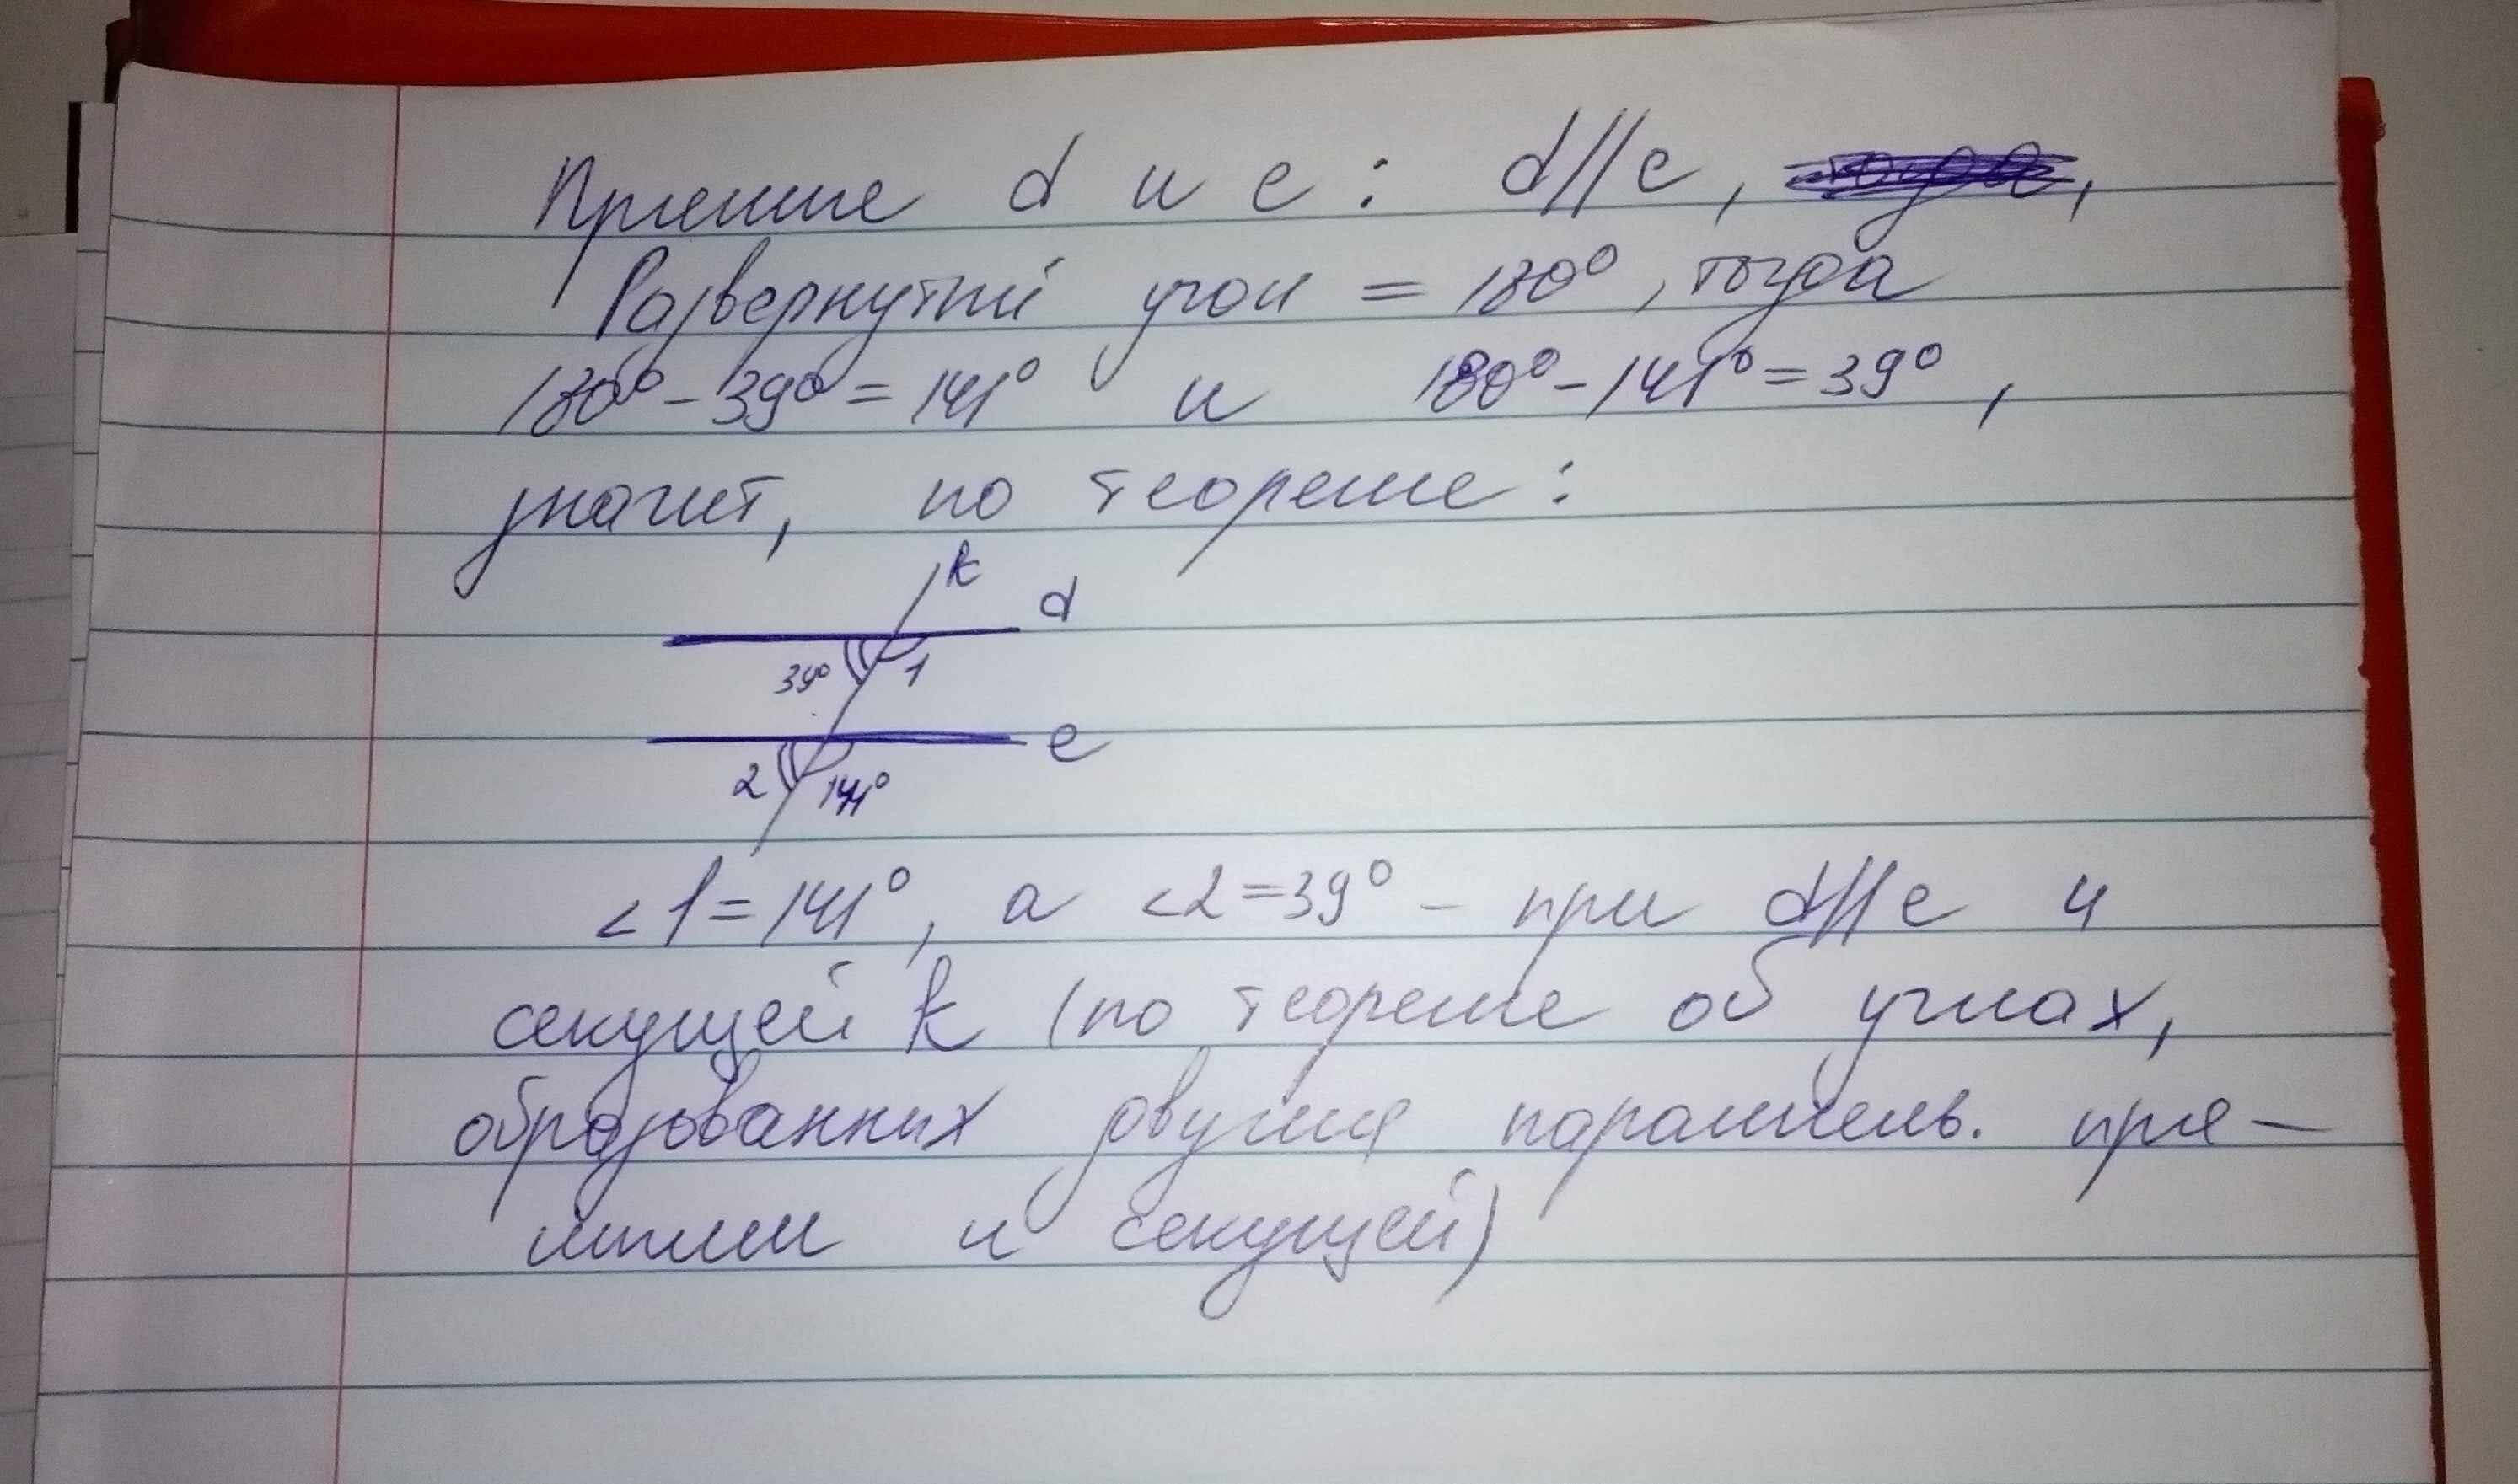 Прямые d и e : d//e ,
Развернутый угол = 180°, тогда
180° - 39° = 141° и 180° - 141° = 39° ,
значит, по теореме :
k
d
39° 1
e
2 141°
<1 = 141°, а <2 = 39° - при d//e и
секущей k (по теореме об углах,
образованных двумя параллель. пря-
мыми и секущей)